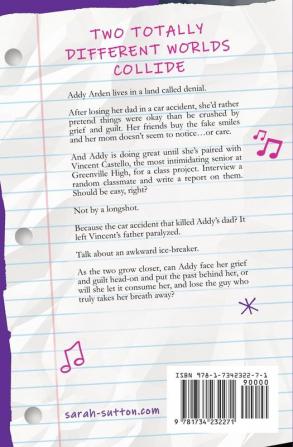 TWO TOTALLY
DIFFERENT WORLDS
COLLIDE
Addy Arden lives in a land called denial.
After losing her dad in a car accident, she'd rather
pretend things were okay than be crushed by
grief and guilt. Her friends buy the fake smiles
and her mom doesn't seem to notice…or care.
And Addy is doing great until she's paired with
Vincent Castello, the most intimidating senior at
Greenville High, for a class project. Interview a
random classmate and write a report on them.
Should be easy, right?
Not by a longshot.
Because the car accident that killed Addy's dad? It
left Vincent's father paralyzed.
Talk about an awkward ice-breaker.
As the two grow closer, can Addy face her grief
and guilt head-on and put the past behind her, or
will she let it consume her, and lose the guy who
truly takes her breath away?
sarah-sutton.com
ISBN 978-1-7342322-7-1
90000
9 781734 232271